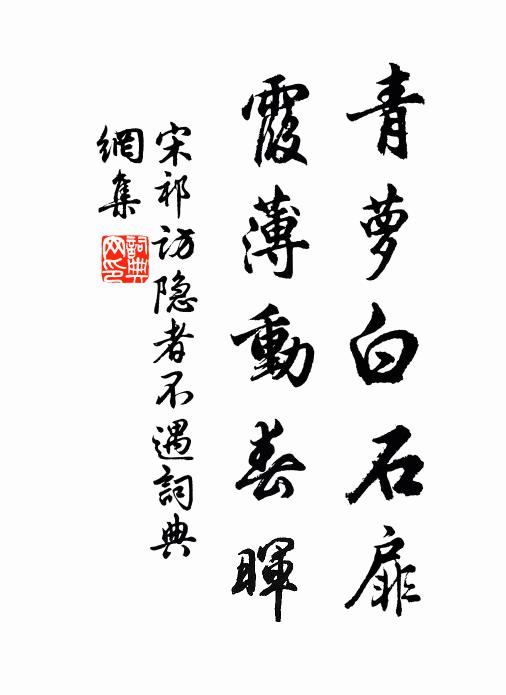 青萝白石扉
霞薄動春暉
宋祁访隐者不遇詞典
網集
詞典
网印